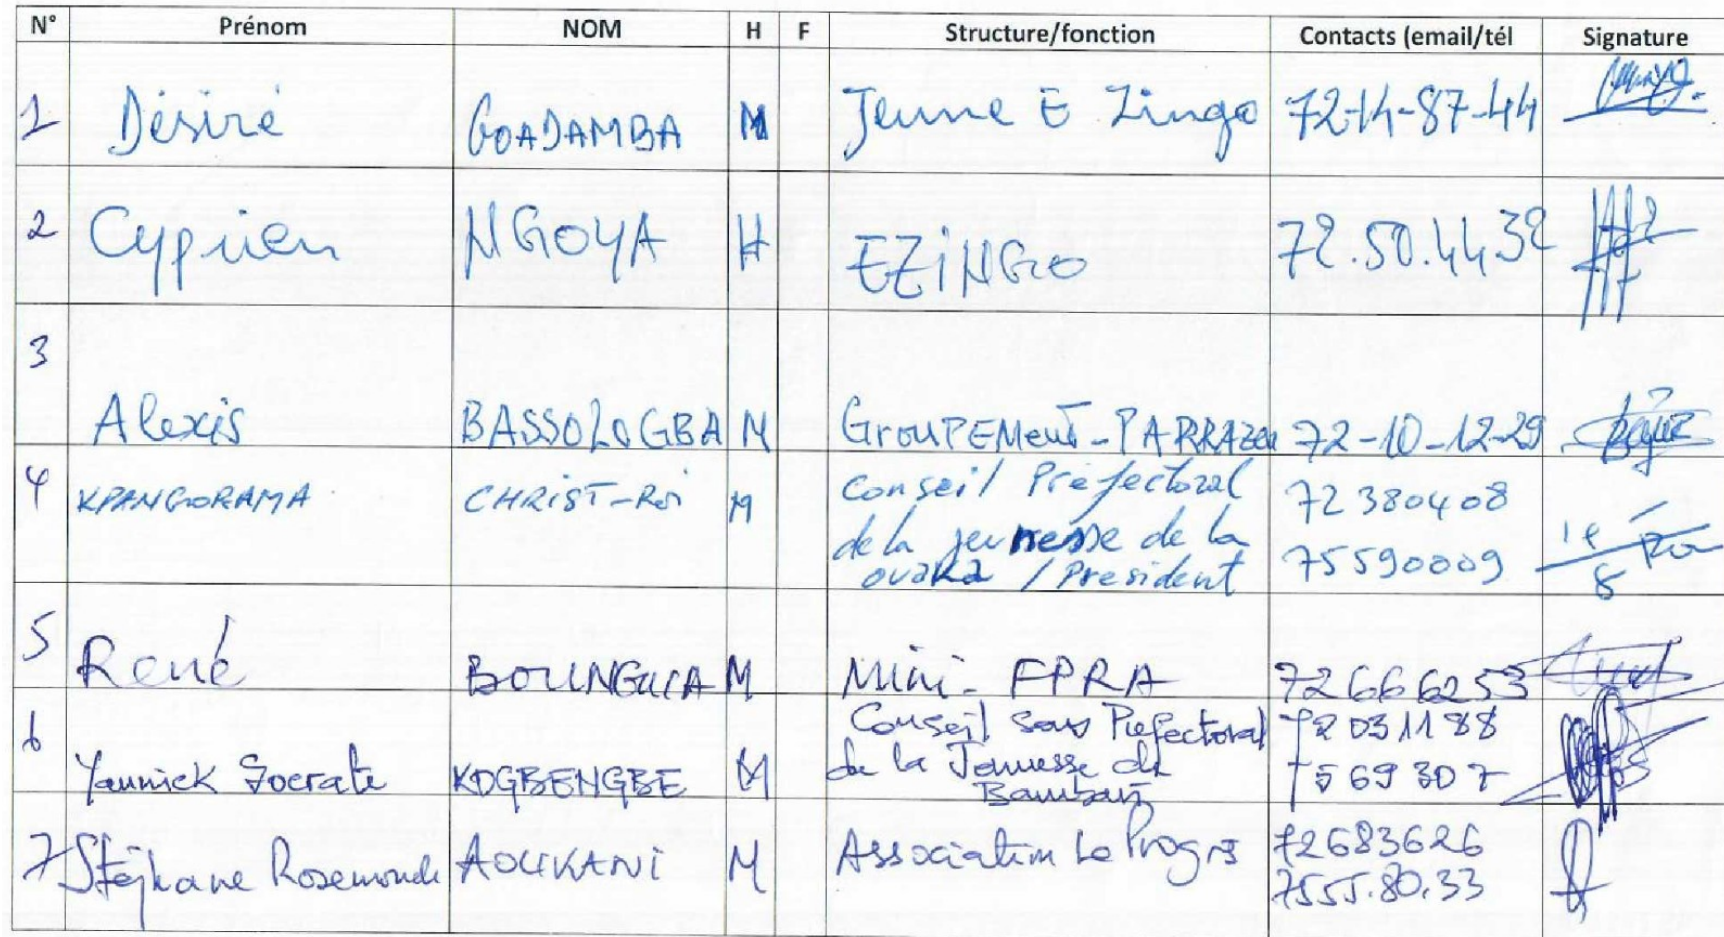 N° Prénom NOM H F Structure/fonction Contacts (email/tél Signature
1 Désiré GOADAMBA M Jeune E Zingo 72-14-87-44
2 Cyprien NGOYA H EZINGO 72.50.44 32
3
Alexis BASSOLOGBA M GrouPEMent-PARRAZEN 72-10-12-29
4 KPANGORAMA CHRIST-Roi M Conseil Préfectoral 72380408
de la jeunesse de la
ouaka / President 75590009
5 René BOUNGUIA M Mini-FPRA 72666253
6 Conseil sous Prefectoral 72031188
Yannick Socrate KOGBENGBE M de la Jeunesse de 7569307
7 Stéphane Rosemonde AOUKANI M Association Le Progrs 72683626
7555.80.33